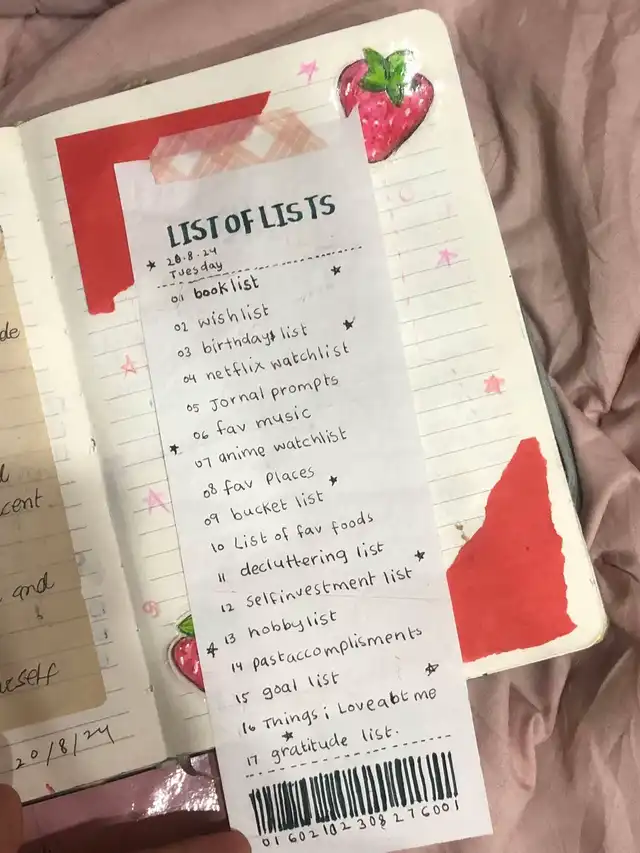 de
cent
and
urself
20/8/24
LIST OF LISTS
20.8.24
Tuesday
01 book list
02 wishlist
03 birthday list
04 netflix watchlist
05 Jornal prompts
06 fav music
07 anime watchlist
08 fav Places
09 bucket list
10 List of fav foods
11 decluttering list
12 selfinvestment list
13 hobby list
14 past accomplisments
15 goal list
16 Things i Love abt me
17 gratitude list.
01602102308276001